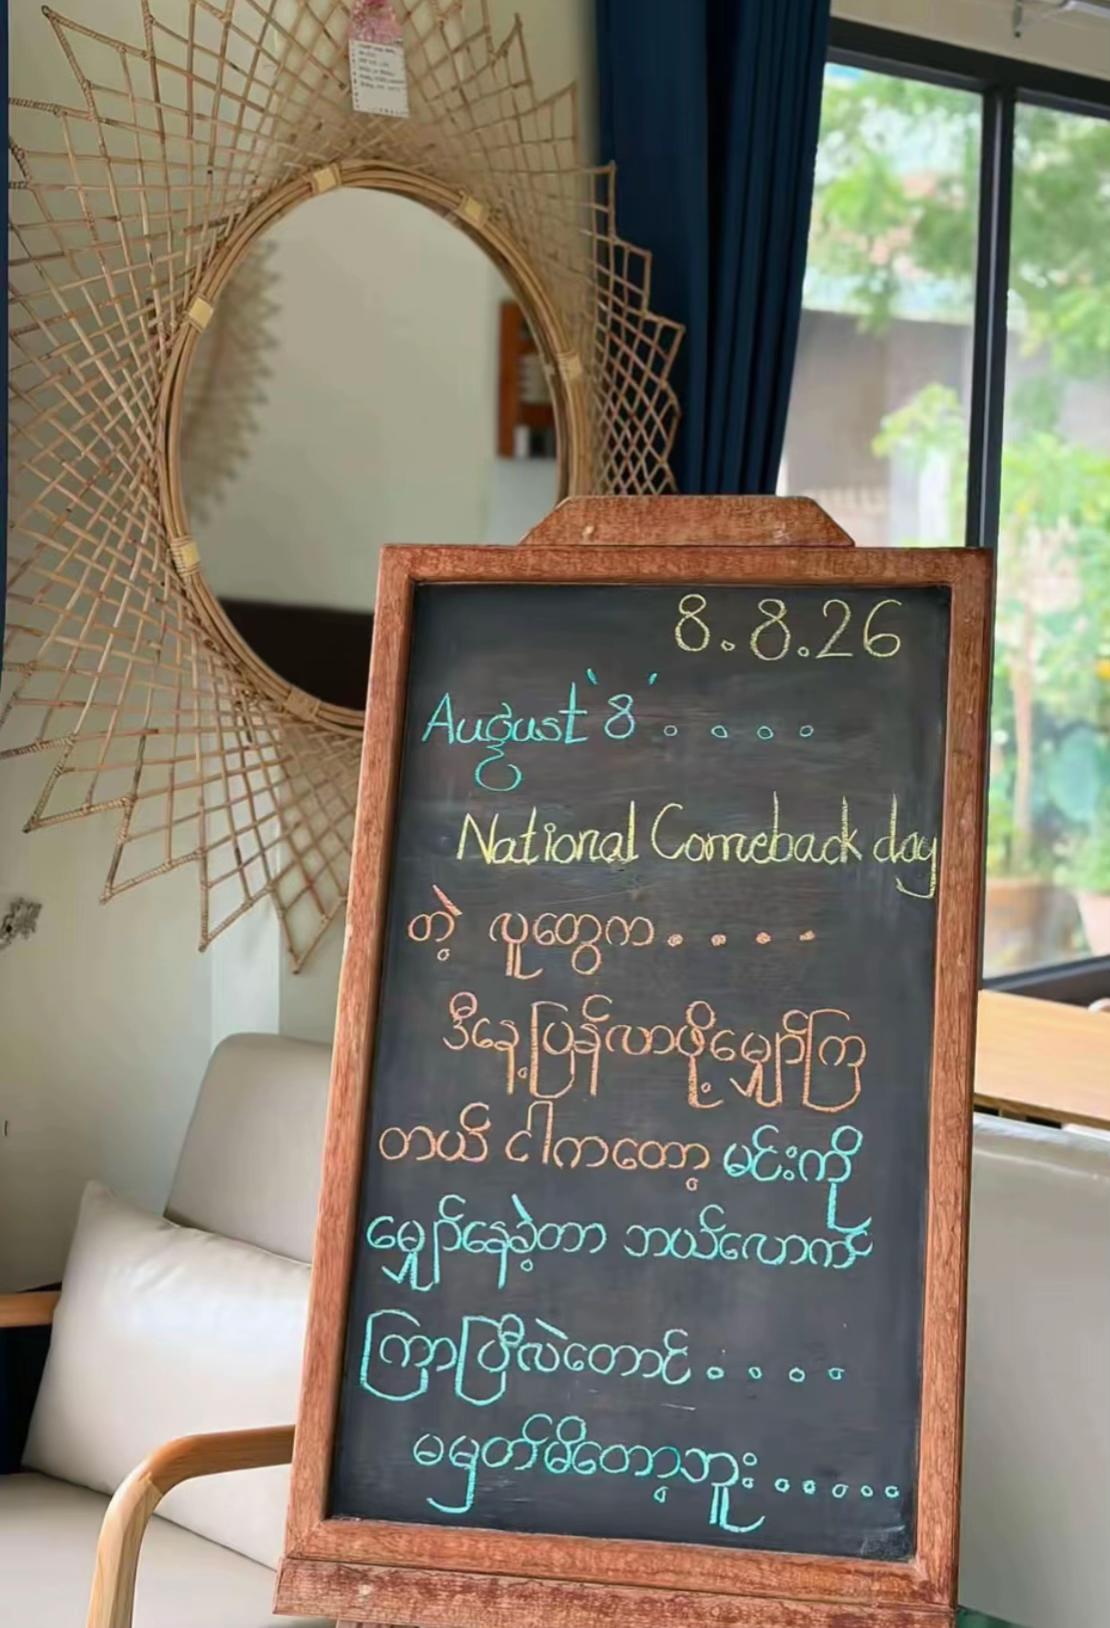 8.8.26
August '8' . . . .
National Comeback day
တဲ့ လူတွေက . . . .
ဒီနေ့ပြန်လာဖို့မျှော်ကြ
တယ် ငါကတော့ မင်းကို
မျှော်နေခဲ့တာ ဘယ်လောက်
ကြာပြီလဲတောင် . . . .
မမှတ်မိတော့ဘူး . . . . . .